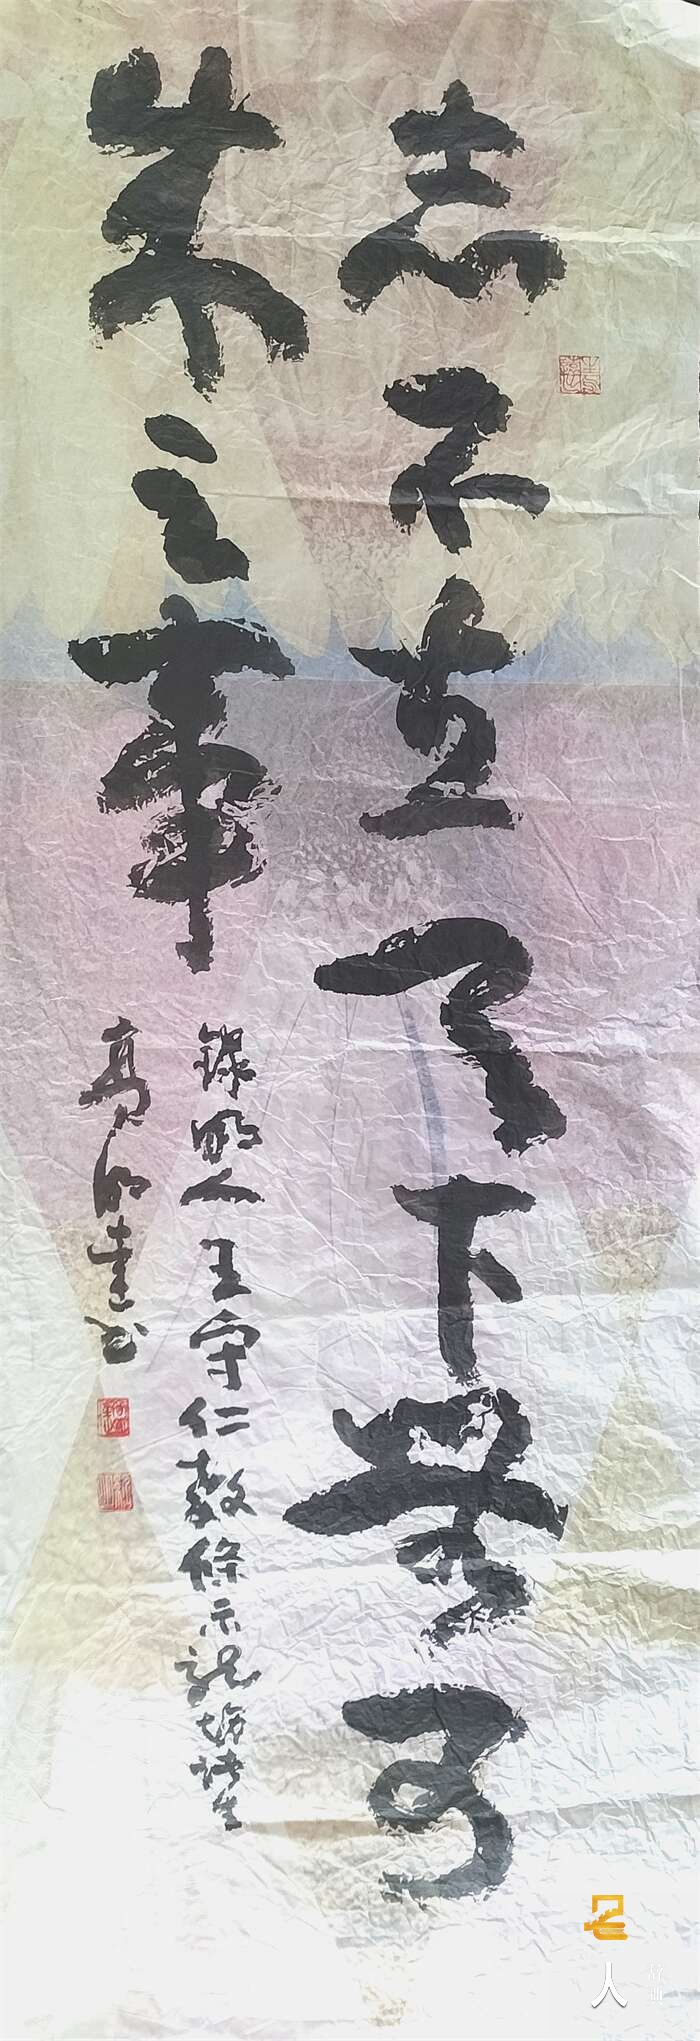 志不立天下無可
成之事
錄明人王守仁教條示龍場諸生
高明達书
名人